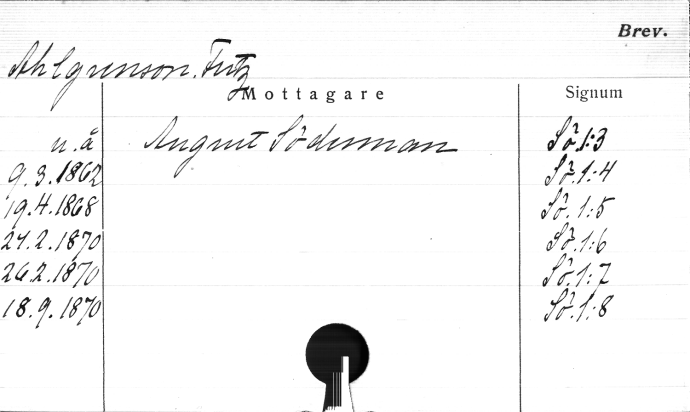 Brev.
Ahlgrenson. Fritz
Mottagare Signum
u.å August Söderman Sö.1:3
9.3.1862 Sö.1:4
19.4.1868 Sö.1:5
21.2.1870 Sö.1:6
26.2.1870 Sö.1:7
18.9.1870 Sö.1:8